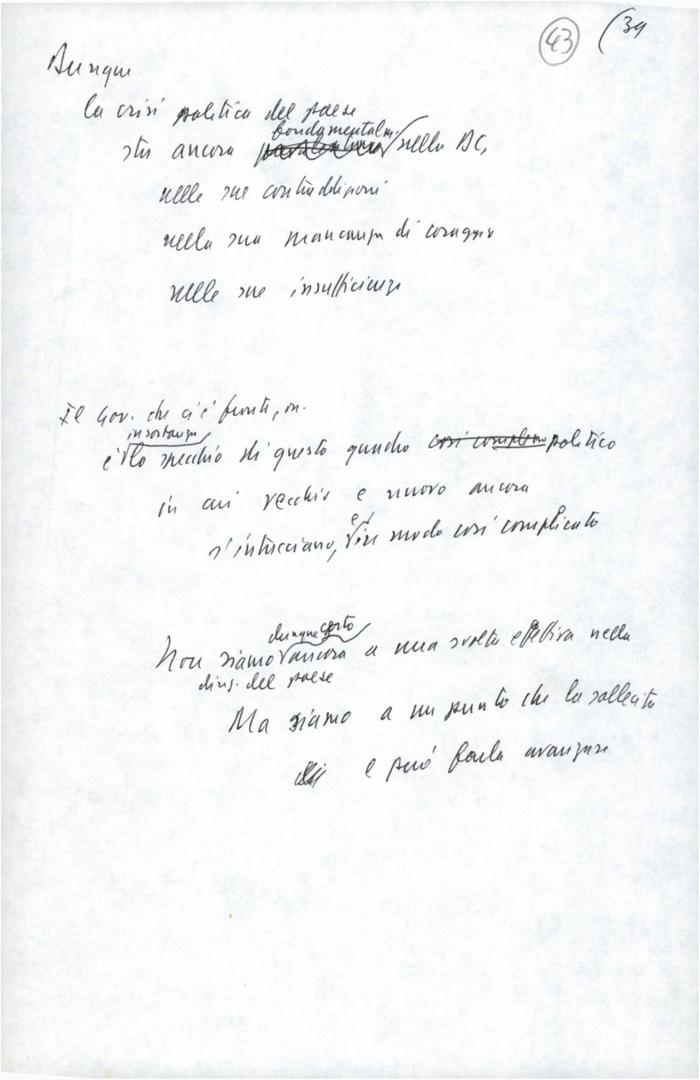 43 (39
Dunque
la crisi politica del paese
fondamentalm.
sta ancora nella DC,
nelle sue contraddizioni
nella sua mancanza di coraggio
nelle sue insufficienze
Il Gov. che ci è
in sostanza
è lo specchio di questo quadro così complesso politico
in cui vecchio e nuovo ancora
e
s'intrecciano, in modo così complicato
dunque certo
Non siamo ancora a una svolta effettiva nella
direz. del paese
Ma siamo a un punto che la sollecita
e può farla avanzare